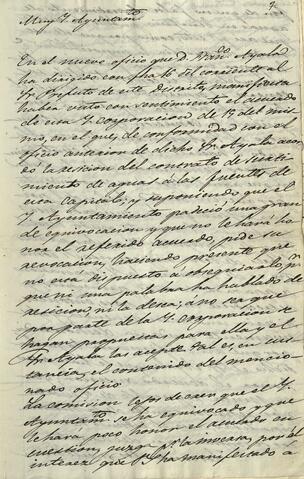 9.
Muy Y. Ayuntamto.
En el nuevo oficio que D. Ayala
ha dirigido con fha 16 del corriente al
de este Distrito, manifiesta
haber visto con sentimiento el acuerdo
de esa Y. Corporacion de 12 del mis
mo, en el que, de conformidad con el
oficio anterior de dicho Sr. Ayala acor
dó la recision del contrato de
miento de aguas á las fuentes de
esta Capital, y suponiendo que el
Y. Ayuntamiento padeció una gran
de equivocacion y que no le hará ho
nor el referido acuerdo, pide su
revocacion, haciendo presente que
no está dispuesto a obsequiarlo, pr.
que ni una palabra ha hablado de
resicion, ni la desea; á no ser que
por parte de la Y. corporacion se
hagan propuestas para ella y el
Sr. Ayala las acepte. Tal es, en sus
tancia, el contenido del mencio
nado oficio.
La comision lejos de creer que el Y.
Ayuntamto. se ha equivocado y que
le hara poco honor el acuerdo en
cuestion, juzga pr. la inversa, por el
interez que ha manifestado á